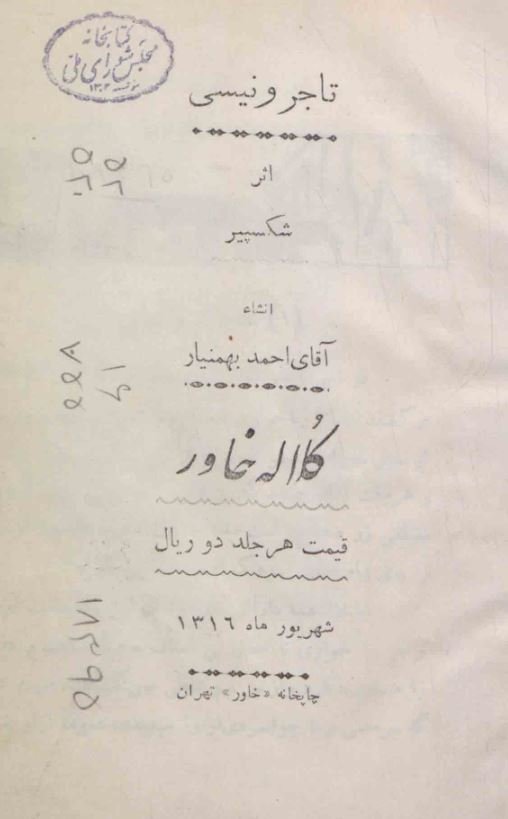 کتابخانه
مجلس شورای ملی
تاجر ونیسی
اثر
شکسپیر
انشاء
آقای احمد بهمنیار
کلاله خاور
قیمت هر جلد دو ریال
شهریور ماه ۱۳۱۶
چاپخانه «خاور» تهران